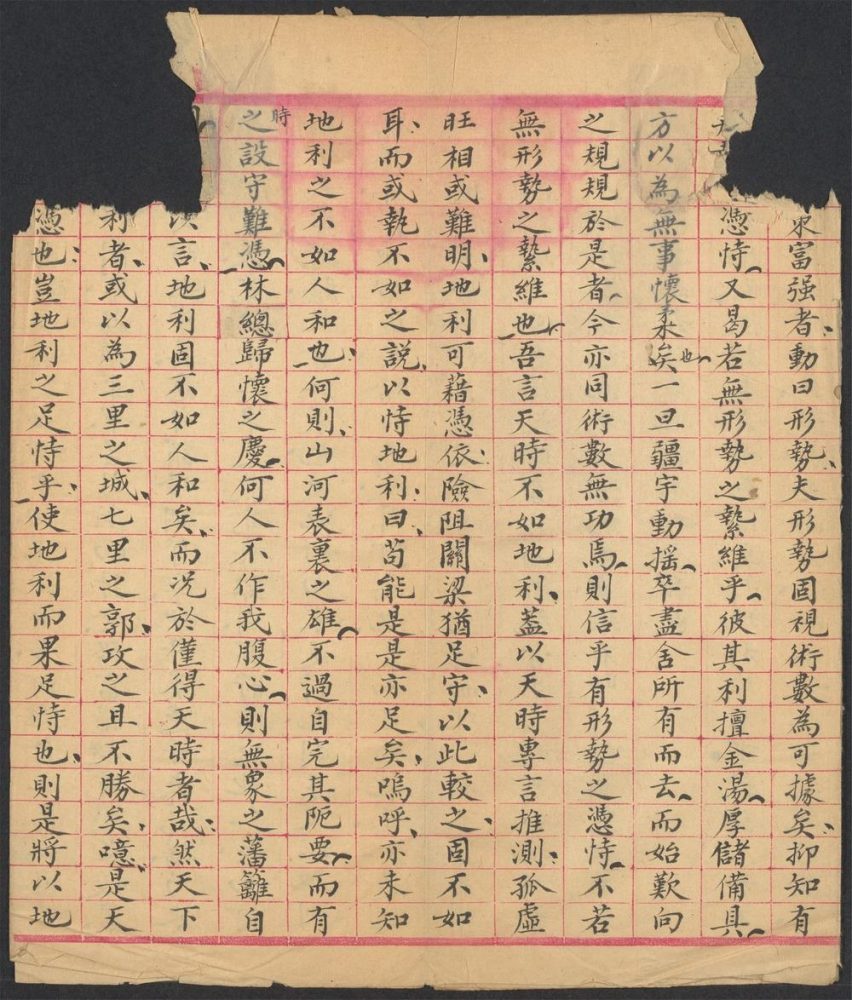 富强者動曰形勢夫形勢固視術數為可據矣抑知有
憑恃又曷若無形勢之縶維乎彼其利擅金湯厚儲備具
方以為無事懷柔矣也一旦疆宇動揺卒盡舍所有而去而始歎向
之規規於是者今亦同術數無功焉則信乎有形勢之憑恃不若
無形勢之縶維也吾言天時不如地利葢以天時専言推測孤虛
旺相或難明地利可藉憑依險阻關梁猶足守以此較之固不如
耳而或執不如之說以恃地利曰苟能是是亦足矣嗚呼亦未知
地利之不如人和也何則山河表裏之雄不過自完其阨要而有
時之設守難憑林總歸懷之慶何人不作我腹心則無象之藩籬自
言地利固不如人和矣而况於僅得天時者哉然天下
利者或以為三里之城七里之郭攻之且不勝矣噫是天
憑也豈地利之足恃乎使地利而果足恃也則是將以地